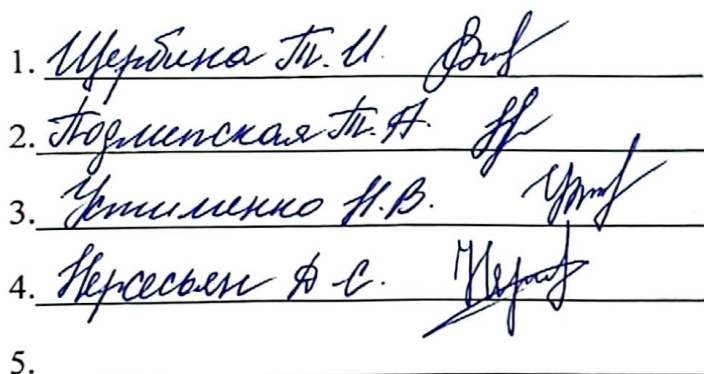 1. Щербина Т. И.
2. Подлипская Т. А.
3. Устименко Н. В.
4. Нерсесьян А. С.
5.